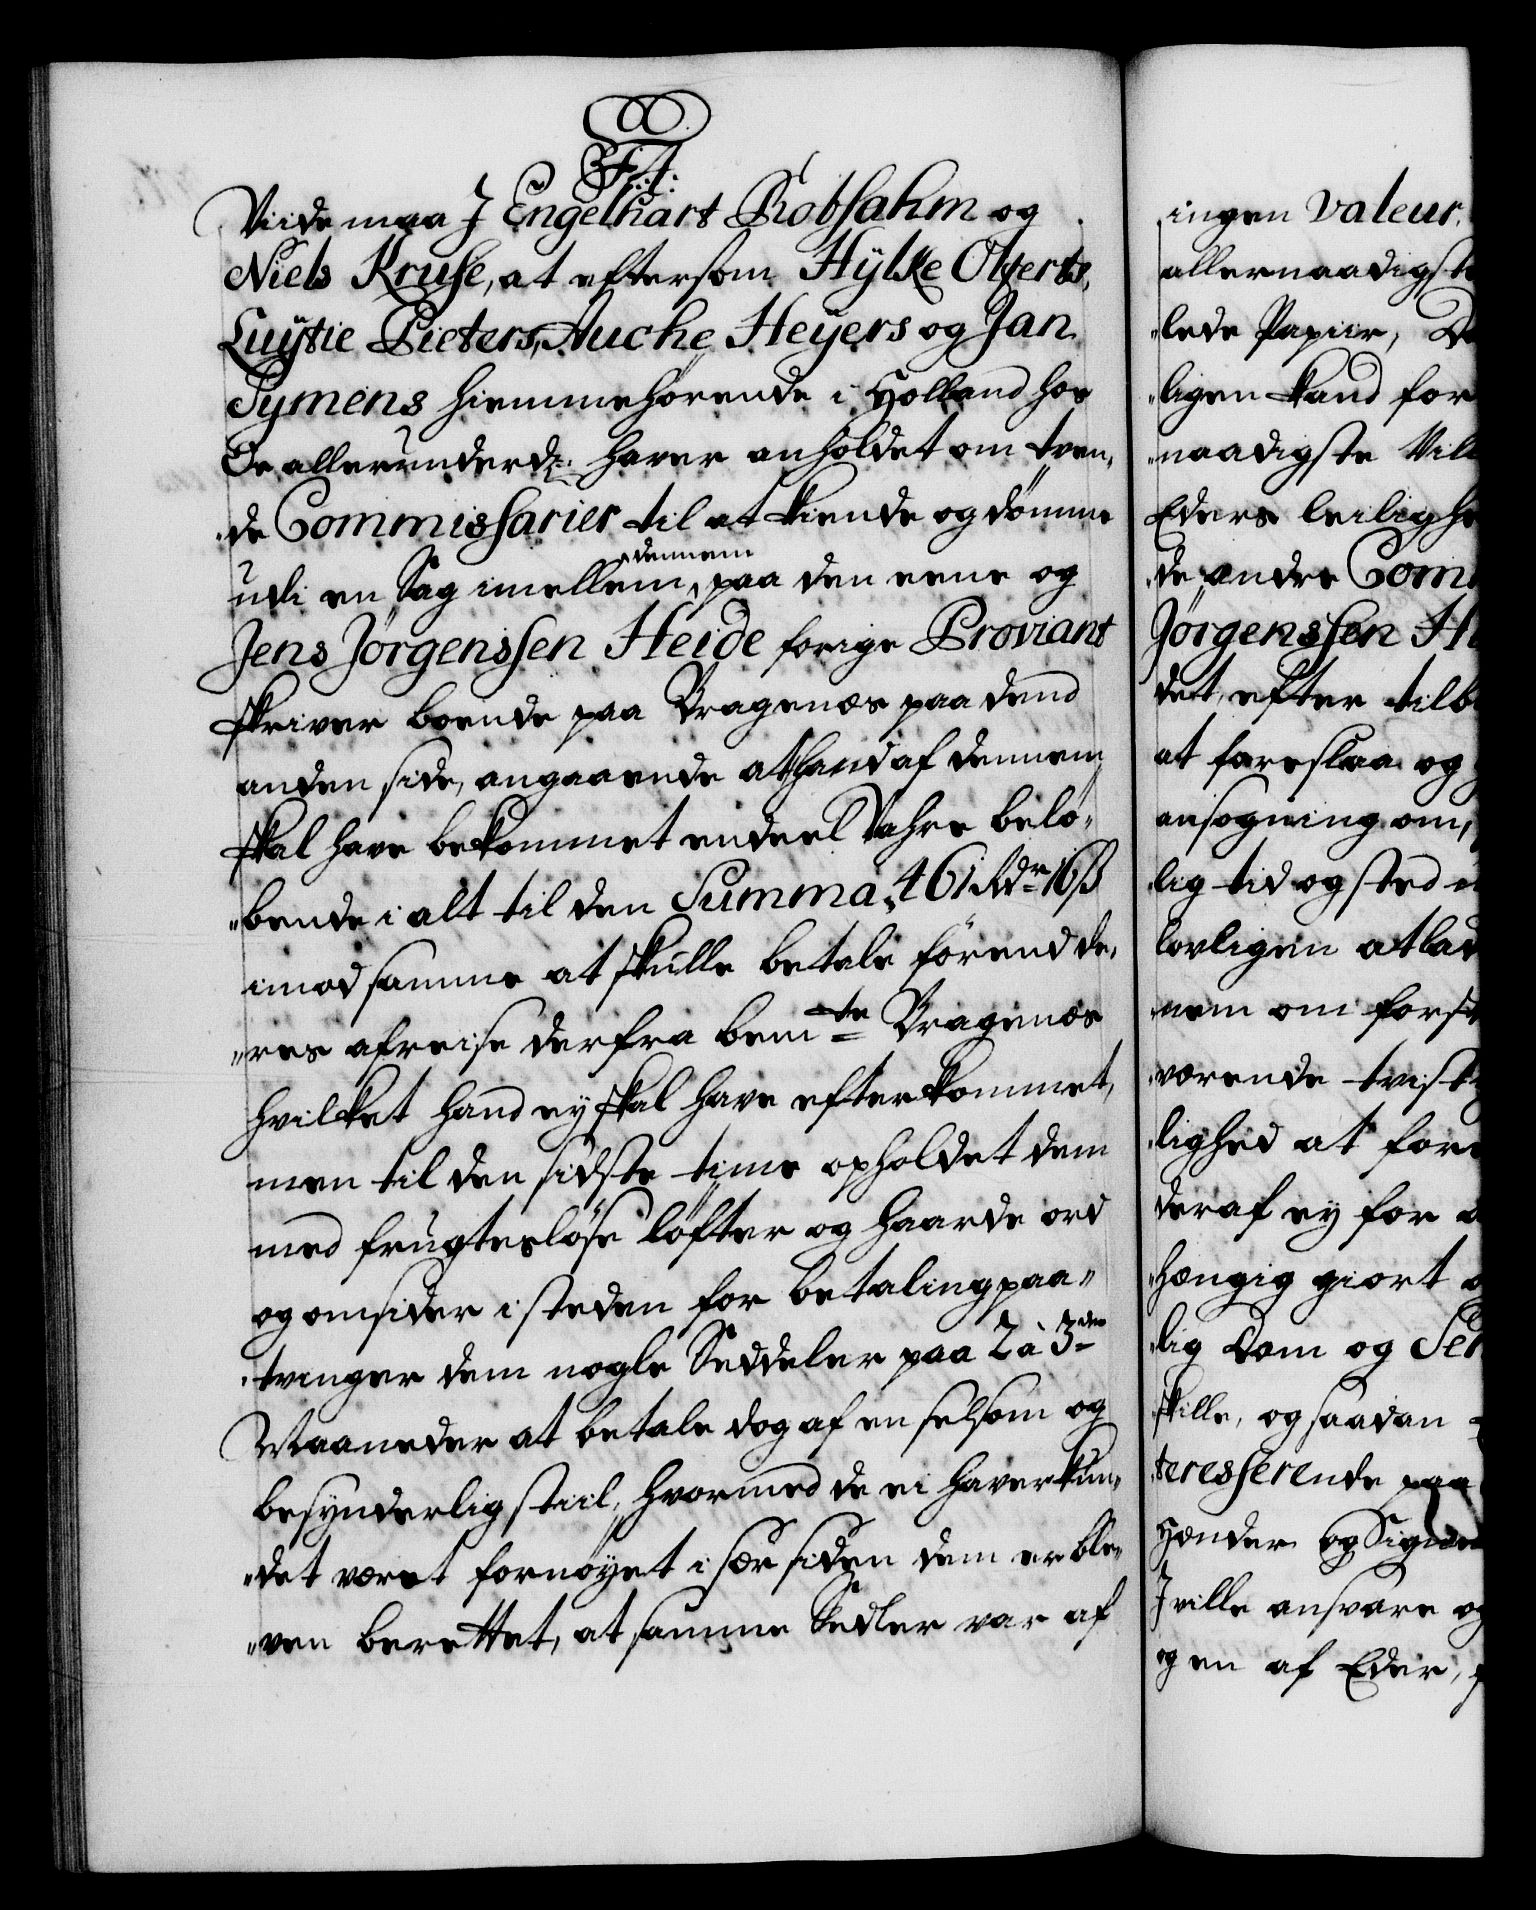 F: 4:
Viide maa J Engelhart Robsahm og
Niels Kruse, at eftersom Hylke Olferts,
Luytie Pieters, Aucke Heyers og Jan
Symens hiemmehörende i Holland hos
Os allerunderd: haver anholdet om tven„
„de Commissarier til at kiende og dömme
udi en Sag imellem dennem paa den eene og
Jens Jörgenssen Heide forige Proviant
skriver boende paa Bragenæs paa dend
anden side, angaaende at hand af dennem
skal have bekommet endeel Vahre belö„
„bende i alt til den Summa 461 Rdr 16 ß
imod samme at skulle betale förend de„
„res afreise derfra bemte Bragenæs
hvilket hand ey skal have efterkommet,
men til den sidste time opholdet dem
med frugteslöse löfter og haarde ord
og omsider i steden for betaling paa„
„tvinger dem nogle Seddeler paa 2 à 3de
Maaneder at betale dog af en selsom og
besynderlig stiil, hvormed de ei haver kun„
„det været fornöyet i sær siden dem er ble„
„ven berettet, at samme Sedler var af
ingen Valeur,
allernaadigst
„lede Papiir,
„ligen kand for
„naadigste Vil
Eders leilighe
„de andre Com
Jörgenssen H
det, efter tilb
at foreslaa og
ansögning om,
„lig tid og sted
lovligen at lad
„nem om forsk
„værende tvist
„lighed at for
deraf ey for
„hængig giort
„lig Dom og Se
skille, og saadan
„teresserende paa
Hænder og Signe
J ville ansvare og
og en af Eder,